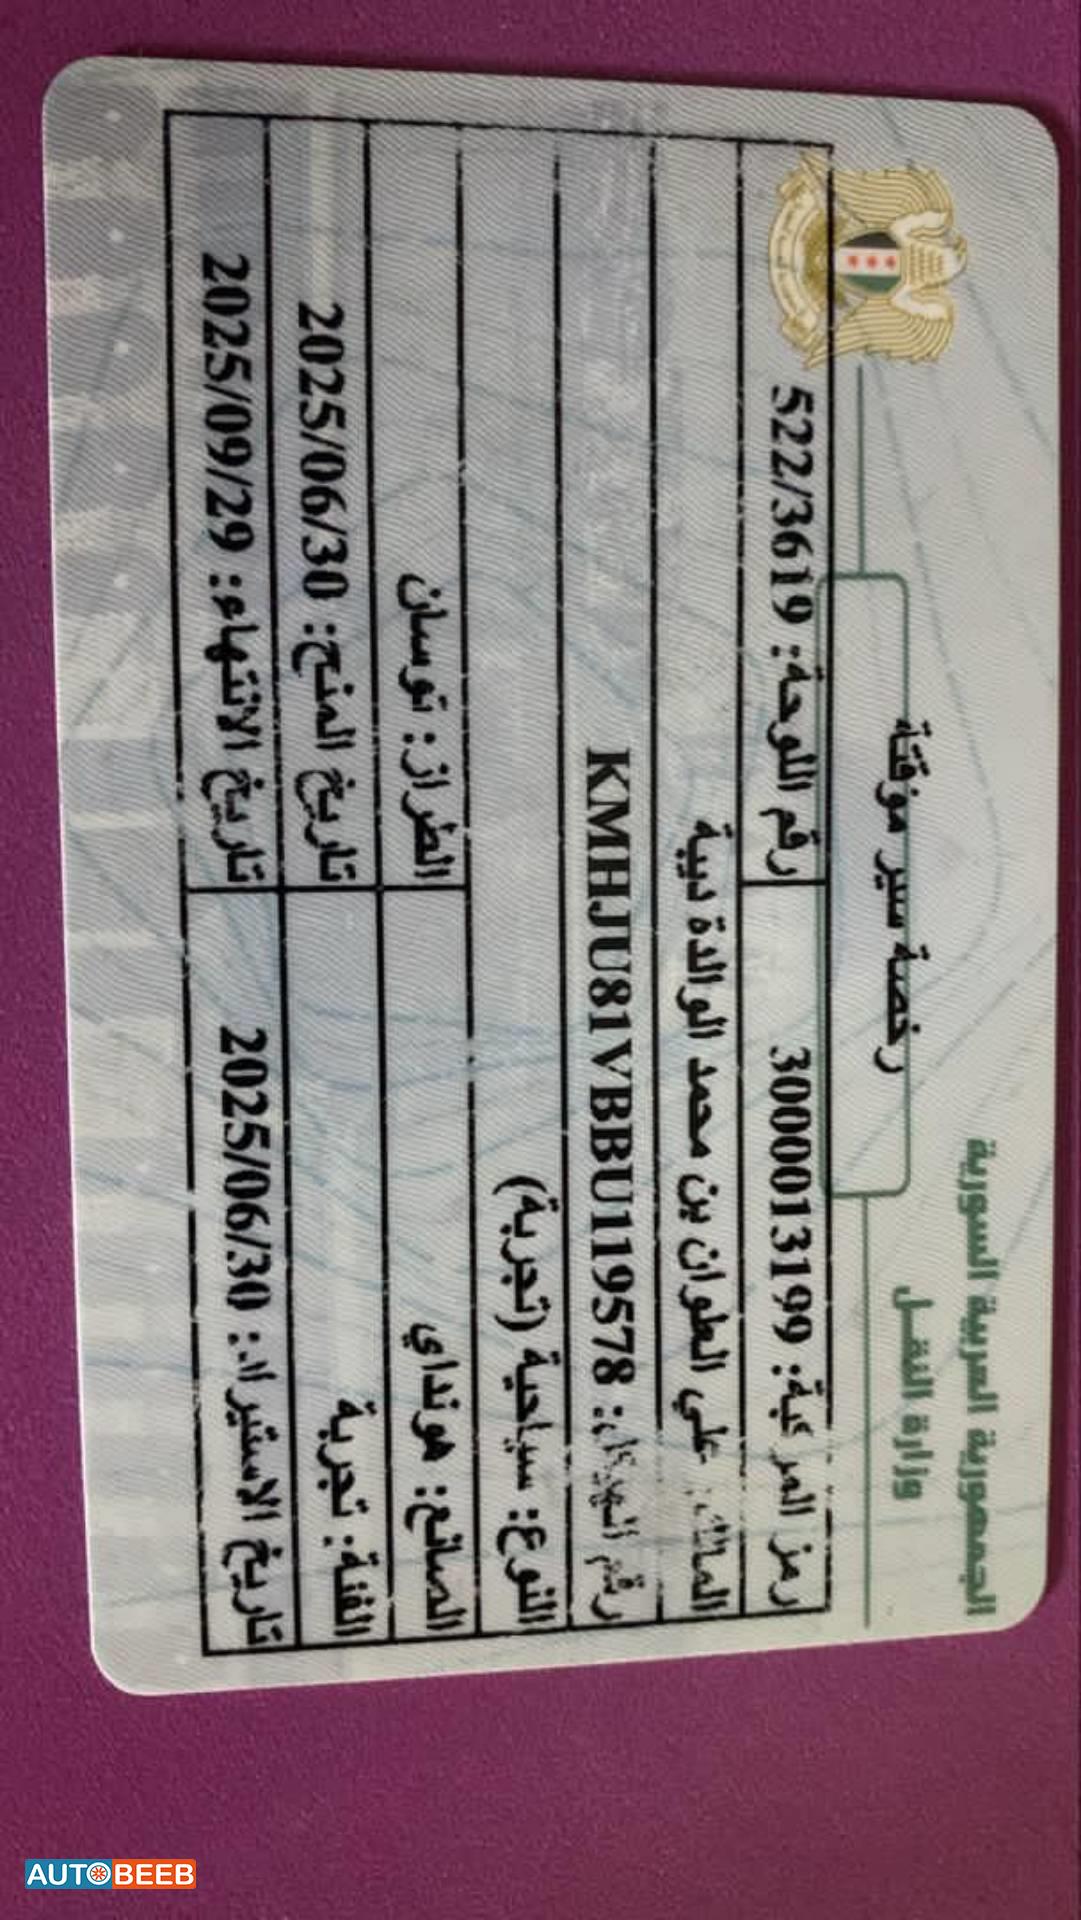 الجمهورية العربية السورية
وزارة النقل
رخصة سير موقتة
رمز المركبة: 3000013199 رقم اللوحة: 522/3619
المالك: علي العلوان بن محمد الوالدة ديبة
رقم الهيكل: KMHJU81VBBU119578
النوع: سياحية (تجربة)
الصانع: هونداي الطراز: توسان
الفئة: تجربة تاريخ المنح: 2025/06/30
تاريخ الاستيراد: 2025/06/30 تاريخ الانتهاء: 2025/09/29
AUTOBEEB